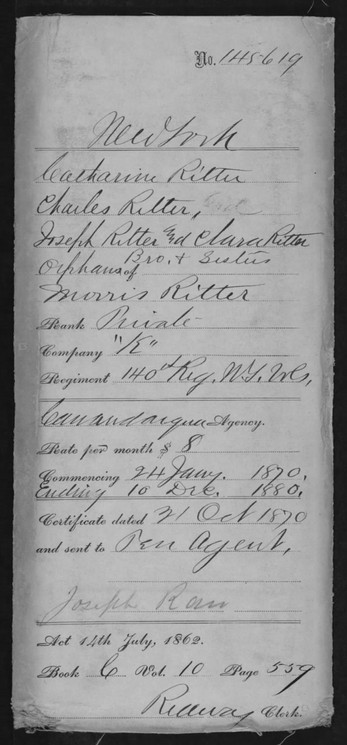 No. 145619
New York
Catharine Ritter
Charles Ritter,
Joseph Ritter & Clara Ritter
Bro. & Sisters
Orphans of
Morris Ritter
Rank Private
Company "K"
Regiment 140th Reg. N.Y. Vols.
Canandaigua Agency.
Rate per month $ 8
Commencing 24 Jany. 1870.
Ending 10 Dec. 1880.
Certificate dated 21 Oct 1870
and sent to Pen Agent,
Joseph Rau
Act 14th July, 1862.
Book C Vol. 10 Page 559
Clerk.